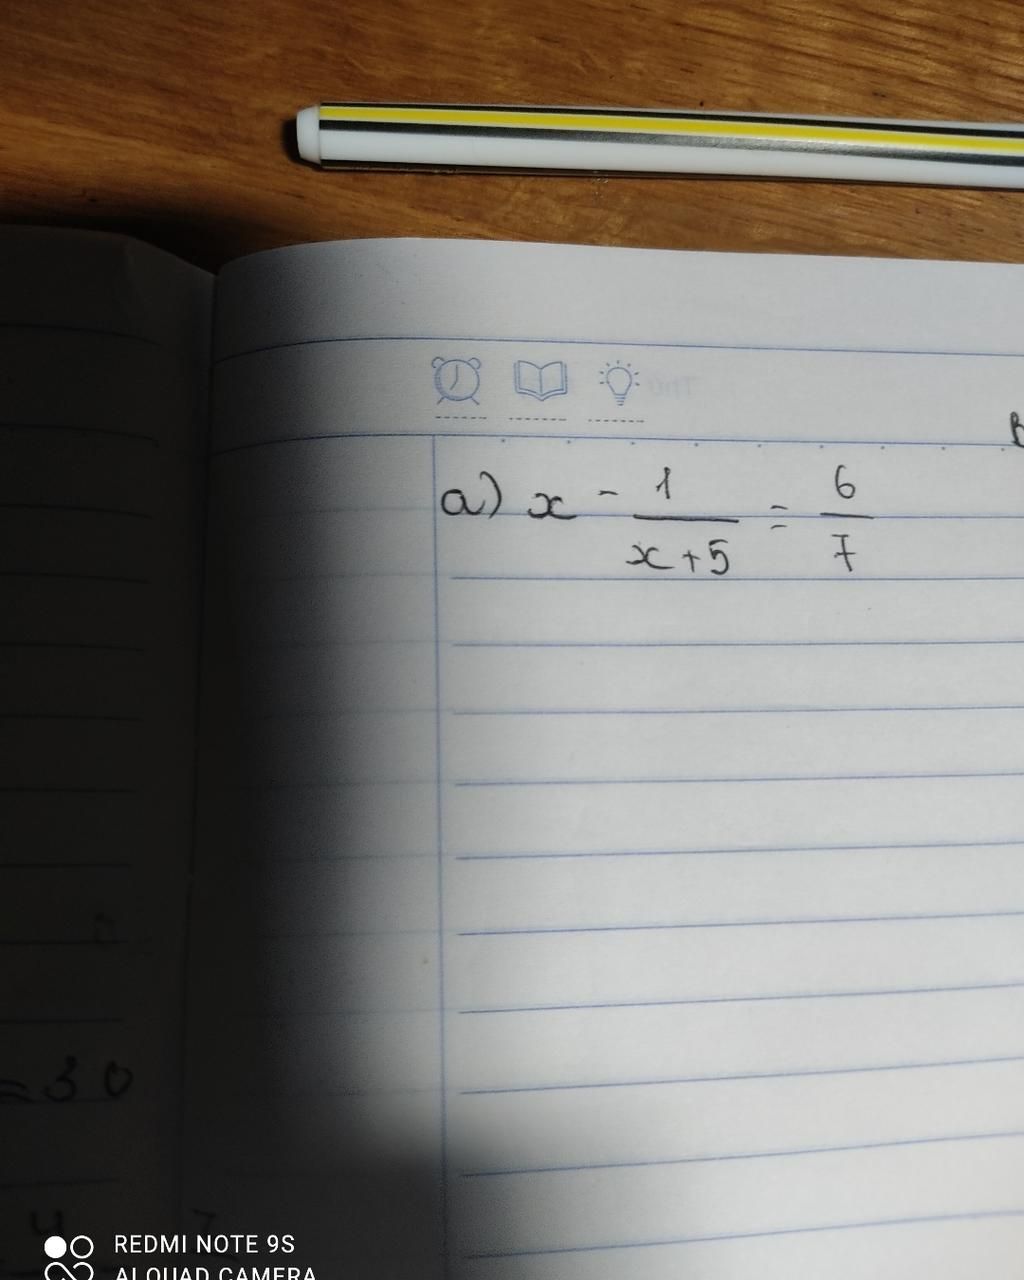 a) x - 1/(x+5) = 6/7
= 30
REDMI NOTE 9S
AI QUAD CAMERA